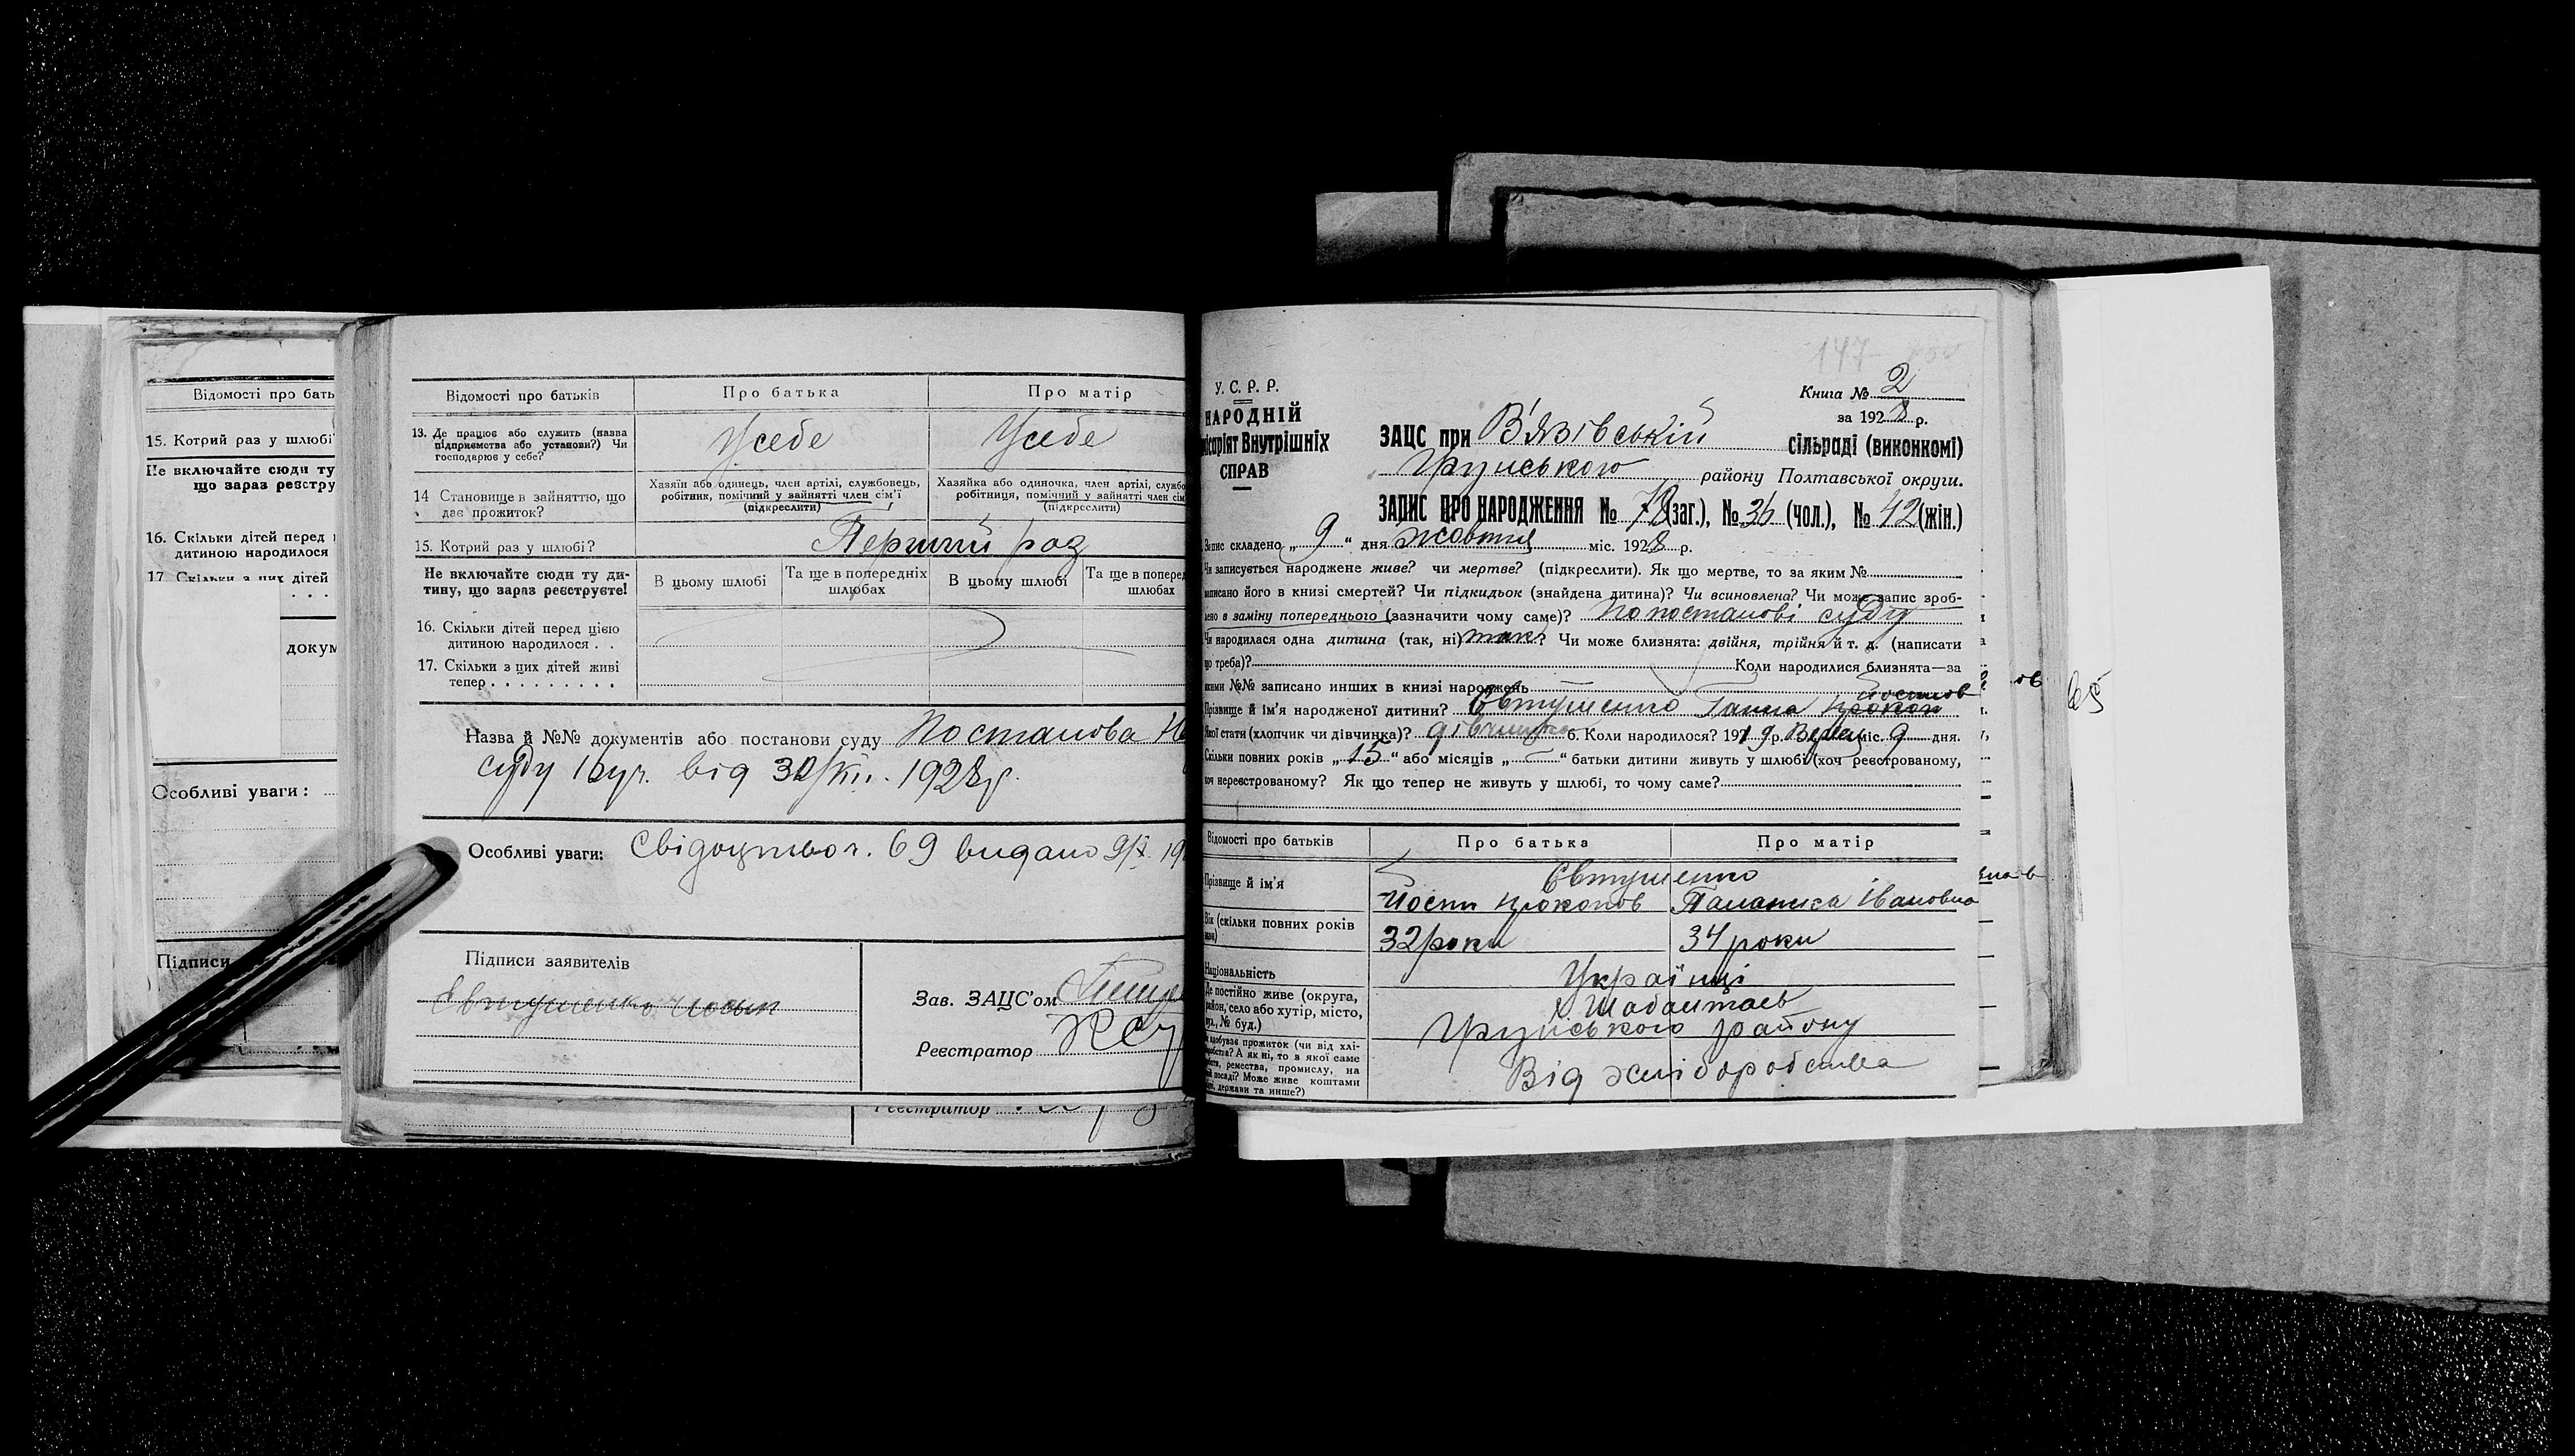 Відомості про бать
15. Котрий раз у шлюбі
Не включайте сюди ту
що зараз реєстру
16. Скільки дітей перед
дитиною народилося
17. Скільки з цих дітей
докум
Особливі уваги:
Підписи
Відомості про батьків Про батька Про матір
13. Де працює або служить (назва
підприємства або установи?) Чи
господарює у себе?
Усебе Усебе
14 Становище в зайняттю, що
дає прожиток?
Хазяїн або одинець, член артілі, службовець,
робітник, помічний у зайнятті член сім'ї
(підкреслити)
Хазяйка або одиночка, член артілі, службо
робітниця, помічний у зайнятті член сім
(підкреслити)
15. Котрий раз у шлюбі? Перший раз
Не включайте сюди ту ди-
тину, що зараз реєструєте!
В цьому шлюбі
Та ще в попередніх
шлюбах
В цьому шлюбі
Та ще в поперед
шлюбах
16. Скільки дітей перед цією
дитиною народилося . .
17. Скільки з цих дітей живі
тепер . . . . . . . . .
Назва й №№ документів або постанови суду Постанова
суду від 1928р.
Особливі уваги: Свідоцтво ч. 69 видано 9/X. 19
Підписи заявителів
Євтушенко
Зав. ЗАЦС'ом
Реєстратор
Реєстратор
147
У. С. Р. Р.
НАРОДНІЙ
місаріят Внутрішніх
СПРАВ
Книга № 2
за 1928 р.
ЗАЦС при В'язівській сільраді (виконкомі)
Грунського району Полтавської округи.
ЗАПИС ПРО НАРОДЖЕННЯ № 78 (заг.), № 36 (чол.), № 42 (жін.)
Запис складено „ 9 “ дня жовтня міс. 1928 р.
Чи записується народжене живе? чи мертве? (підкреслити). Як що мертве, то за яким №
записано його в книзі смертей? Чи підкидьок (знайдена дитина)? Чи всиновлена? Чи може запис зроб-
лено в заміну попереднього (зазначити чому саме)? по постанові суду
Чи народилася одна дитина (так, ні) так? Чи може близнята: двійня, трійня й т. д. (написати
що треба)? Коли народилися близнята—за
якими №№ записано инших в книзі народжень
Прізвище й ім'я народженої дитини? Євтушенко Ганна
Якої стати (хлопчик чи дівчинка)? дівчинка 6. Коли народилося? 1919 р. міс. 9 дня.
Скільки повних років „ 15 “ або місяців „ “ батьки дитини живуть у шлюбі (хоч реєстрованому,
хоч нереєстрованому? Як що тепер не живуть у шлюбі, то чому саме?
Відомості про батьків Про батька Про матір
Прізвище й ім'я Євтушенко
Йосип Прокопов Палажка Івановна
Вік (скільки повних років
має) 32 роки 34 роки
Національність Українці
Де постійно живе (округа,
район, село або хутір, місто,
вул., № буд.)
Грунського району
добуває прожиток (чи від хлі-
боробства? А як ні, то з якої саме
ремества, промислу, на
посаді? Може живе коштами
держави та инше?)
Від хліборобства